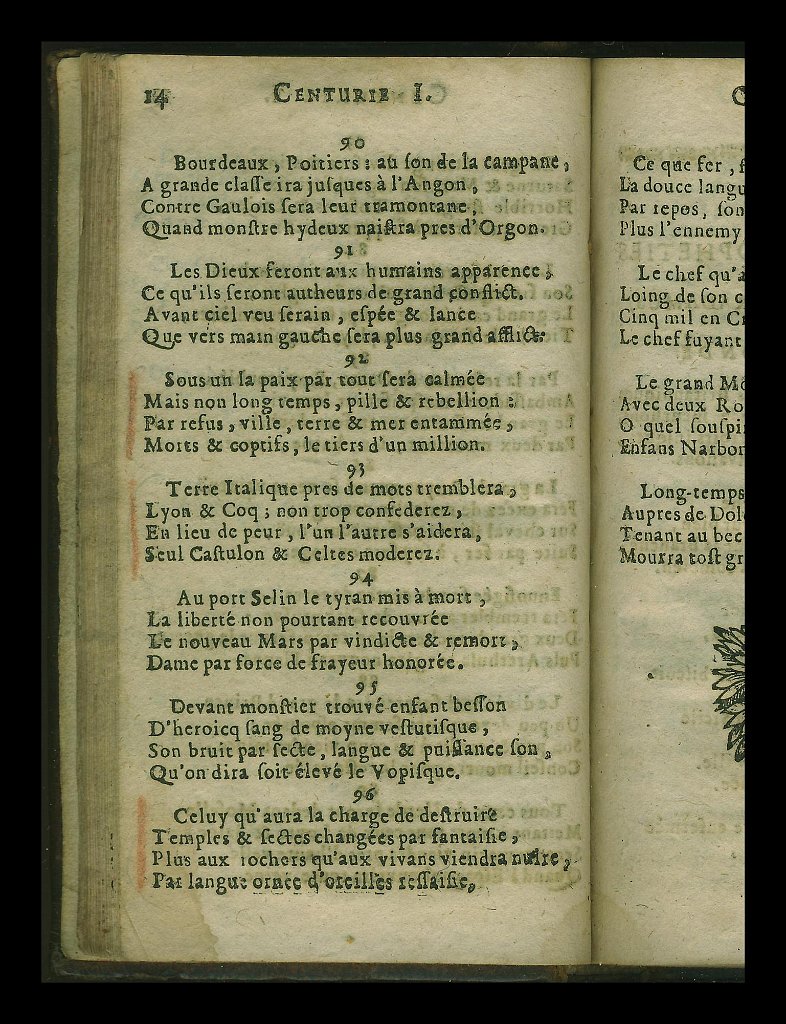 14 CENTURIE I.
90
Bourdeaux, Poitiers : au ſon de la campane,
A grande claſſe ira juſques à l'Angon,
Contre Gaulois ſera leur tramontane,
Quand monſtre hydeux naiſtra pres d'Orgon.
91
Les Dieux feront aux humains apparence,
Ce qu'ils ſeront autheurs de grand conflict.
Avant ciel veu ſerain, eſpée & lance
Que vers main gauche ſera plus grand afflict.
92
Sous un la paix par tout ſera calmée
Mais non long temps, pille & rebellion :
Par refus, ville, terre & mer entammée,
Morts & coptifs, le tiers d'un million.
93
Terre Italique pres de mots tremblera,
Lyon & Coq ; non trop confederez,
En lieu de peur, l'un l'autre s'aidera,
Seul Caſtulon & Celtes moderez.
94
Au port Selin le tyran mis à mort,
La liberté non pourtant recouvrée
Le nouveau Mars par vindicte & remort,
Dame par force de frayeur honorée.
95
Devant monſtier trouvé enfant beſſon
D'heroicq ſang de moyne veſtutiſque,
Son bruit par ſecte, langue & puiſſance ſon,
Qu'on dira ſoit élevé le Vopiſque.
96
Celuy qu'aura la charge de deſtruire
Temples & ſectes changées par fantaiſie,
Plus aux rochers qu'aux vivans viendra nuire,
Par langue ornée d'oreilles reſſaiſie,
C
Ce que fer,
La douce langu
Par repos, ſon
Plus l'ennemy
Le chef qu'a
Loing de ſon c
Cinq mil en C
Le chef fuyant
Le grand Mo
Avec deux Ro
O quel ſouſpi
Enfans Narbon
Long-temps
Aupres de Dol
Tenant au bec
Mourra toſt gr